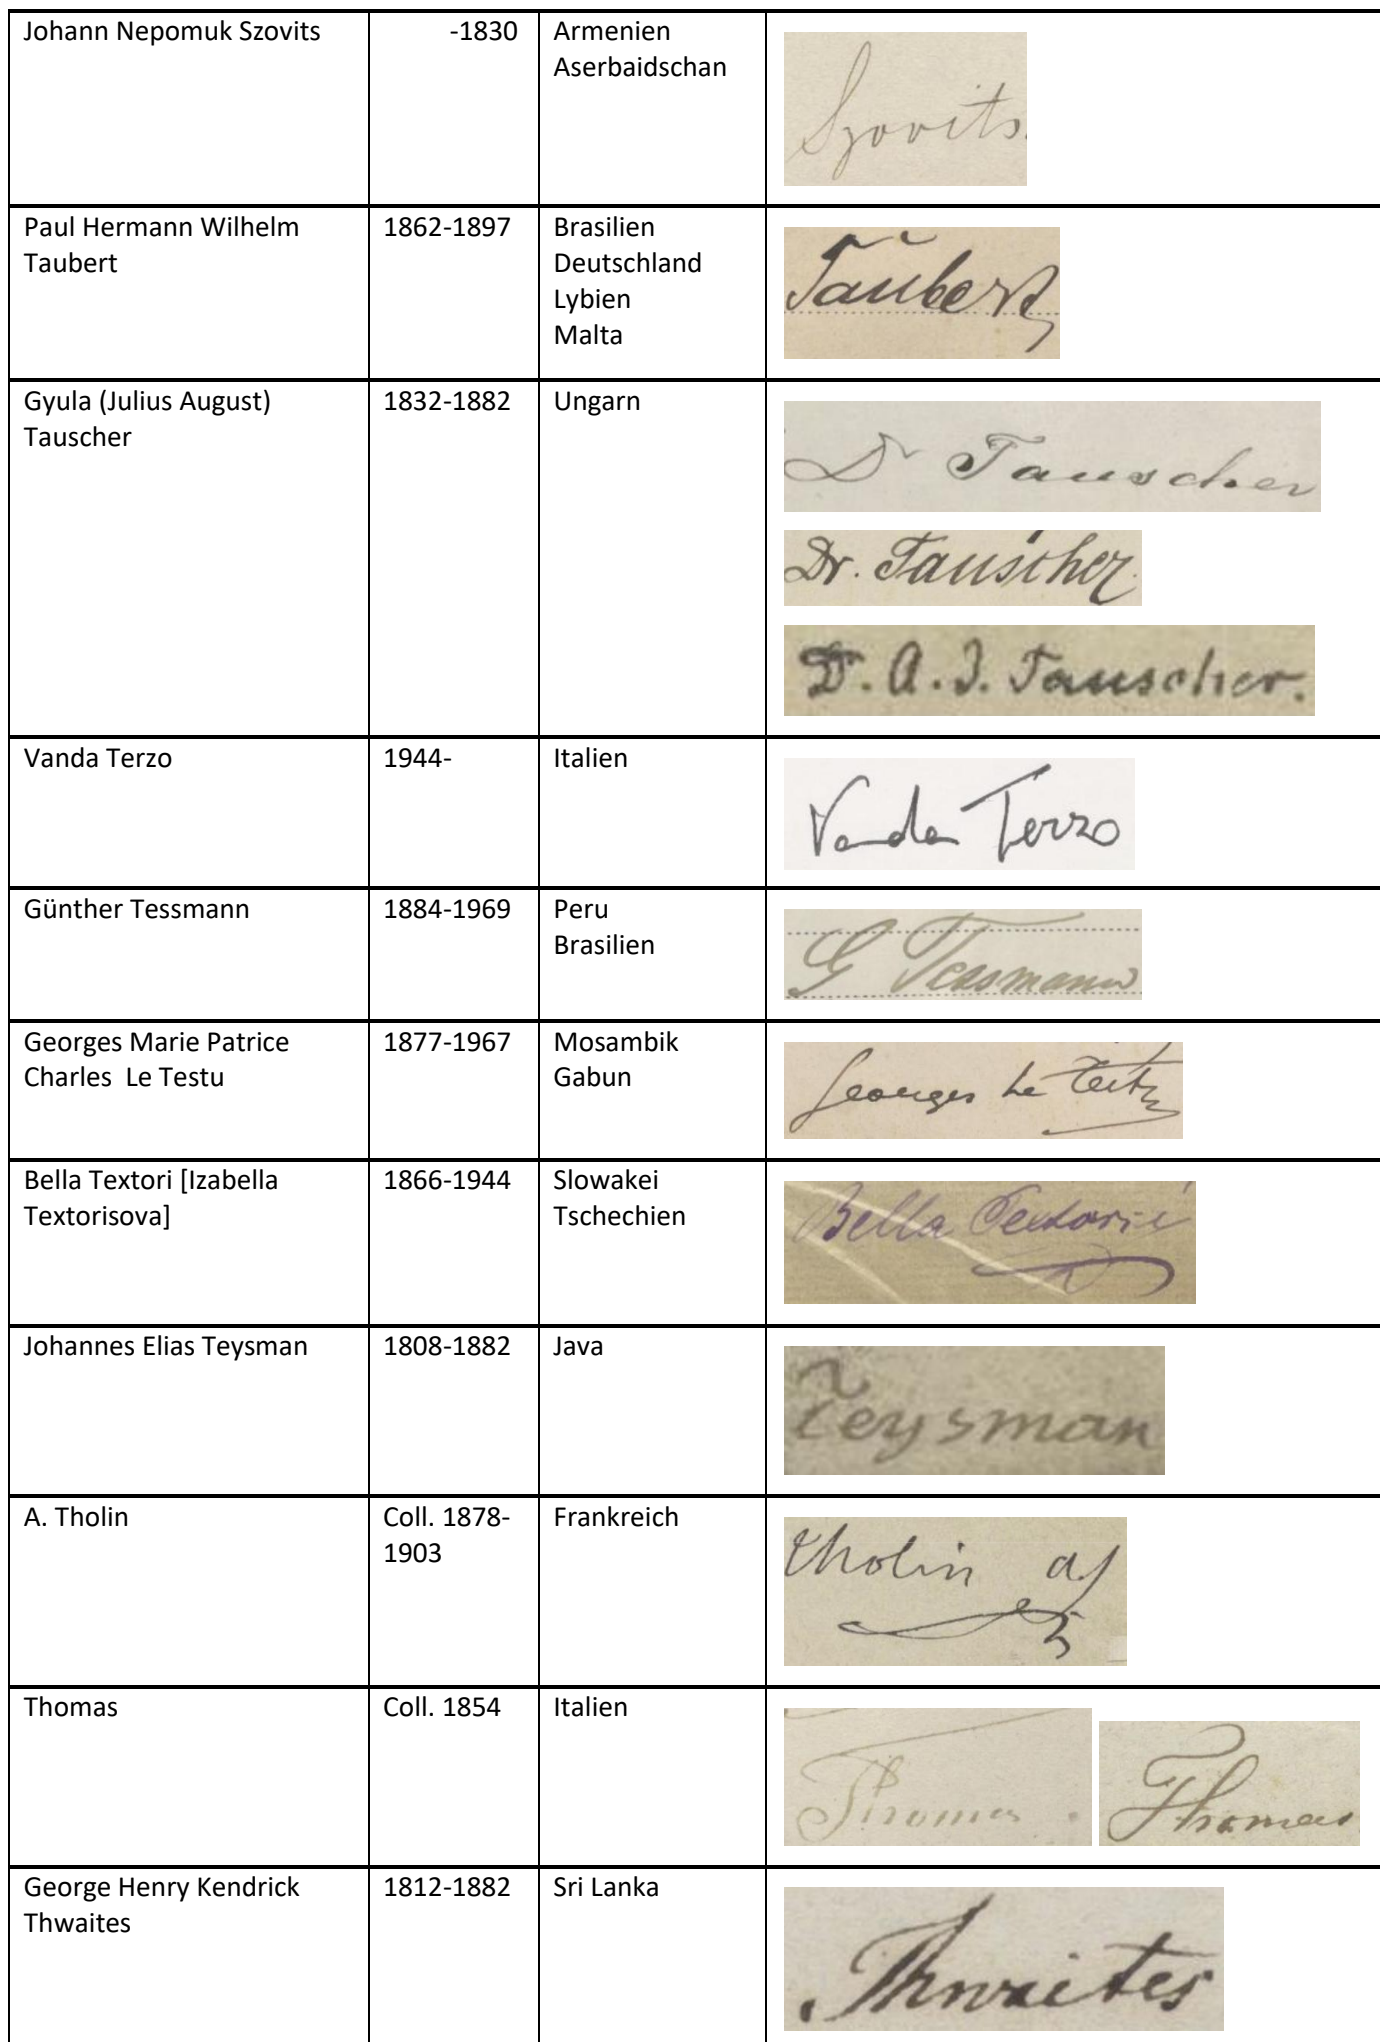 Johann Nepomuk Szovits
-1830
Armenien
Aserbaidschan
Szovits.
Paul Hermann Wilhelm
Taubert
1862-1897
Brasilien
Deutschland
Lybien
Malta
Taubert
Gyula (Julius August)
Tauscher
1832-1882
Ungarn
Dr Tauscher
Dr. Tauscher
D. A. J. Tauscher.
Vanda Terzo
1944-
Italien
Vanda Terzo
Günther Tessmann
1884-1969
Peru
Brasilien
G Tessmann
Georges Marie Patrice
Charles  Le Testu
1877-1967
Mosambik
Gabun
Georges Le Testu
Bella Textori [Izabella
Textorisova]
1866-1944
Slowakei
Tschechien
Bella Textori
Johannes Elias Teysman
1808-1882
Java
Teysman
A. Tholin
Coll. 1878-
1903
Frankreich
Tholin a
Thomas
Coll. 1854
Italien
Thomas. Thomas
George Henry Kendrick
Thwaites
1812-1882
Sri Lanka
Thwaites